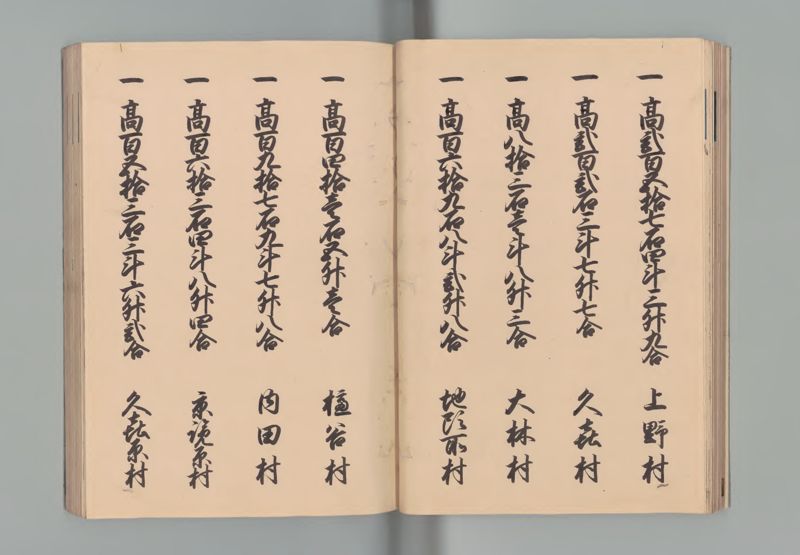 一 高弐百五拾七石四斗三升九合 上野村
一 高弐百弐石三斗七升七合 久喜村
一 高八拾三石壱斗八升三合 大林村
一 高百六拾九石八斗弐升八合 地頭所村
一 高百四拾壱石五升壱合 樒谷村
一 高百九拾七石九斗七升八合 内田村
一 高百六拾三石四斗八升四合 京読原村
一 高百五拾三石三斗六升弐合 久喜原村